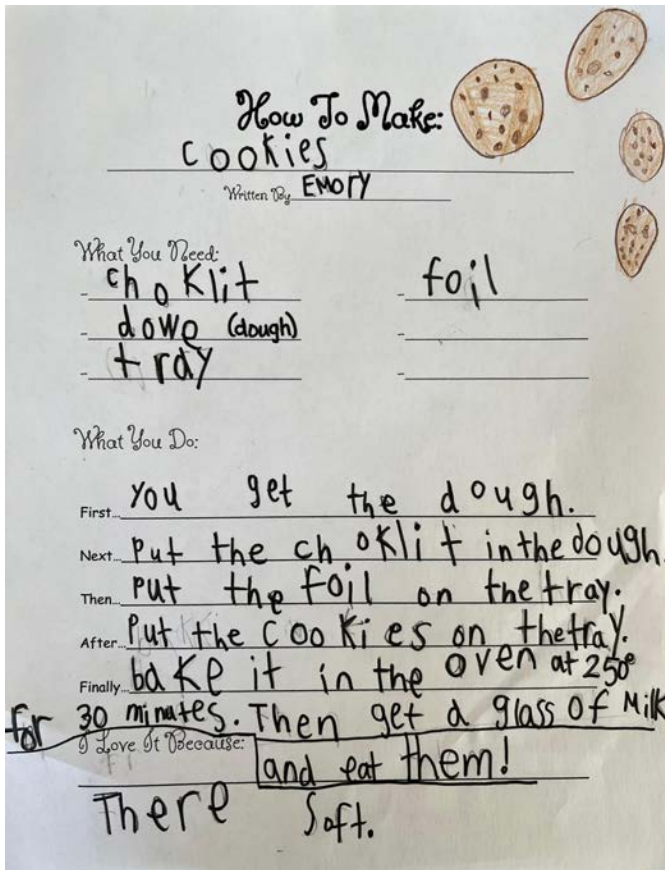 How To Make:
cookies
Written By EMOrY
What You Need:
- choklit
- dowe (dough)
- tray
- foil
-
-
What You Do:
First... You get the dough.
Next... Put the choklit in the dough.
Then... Put the foil on the tray.
After... Put the cookies on the tray.
Finally... bake it in the oven at 250°
for 30 minates. Then get a glass of Milk
I Love It Because:
and eat them!
There Soft.